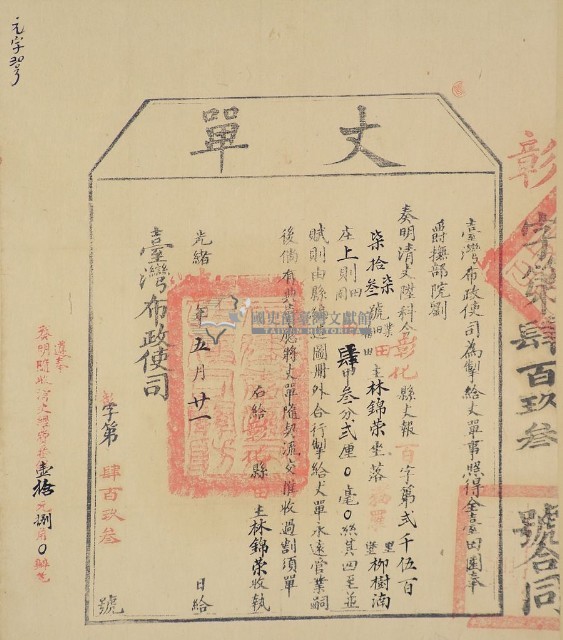 丈單
臺灣布政使司為掣給丈單事照得全臺田園奉
爵撫部院劉
奏明清丈陞科合彰化縣丈報百字第弍千伍百
柒拾柒號
田主林錦榮坐落
里堡柳樹湳
庄上則田
肆甲叁分弍厘0毫0絲其四至並
賦則由縣造圖冊外合行掣給丈單永遠管業嗣
後倘有典賣應將丈單隨契流交推收過割須單
右給彰化縣田主林錦榮收執
光緒
年五月廿一
日給
臺灣布政使司
字第肆百玖叁號
彰
字第肆百玖叁號合同
遵奉
奏明隨收清丈經費
壹拾元
元字號
國史館臺灣文獻館
TAIWAN HISTORICA